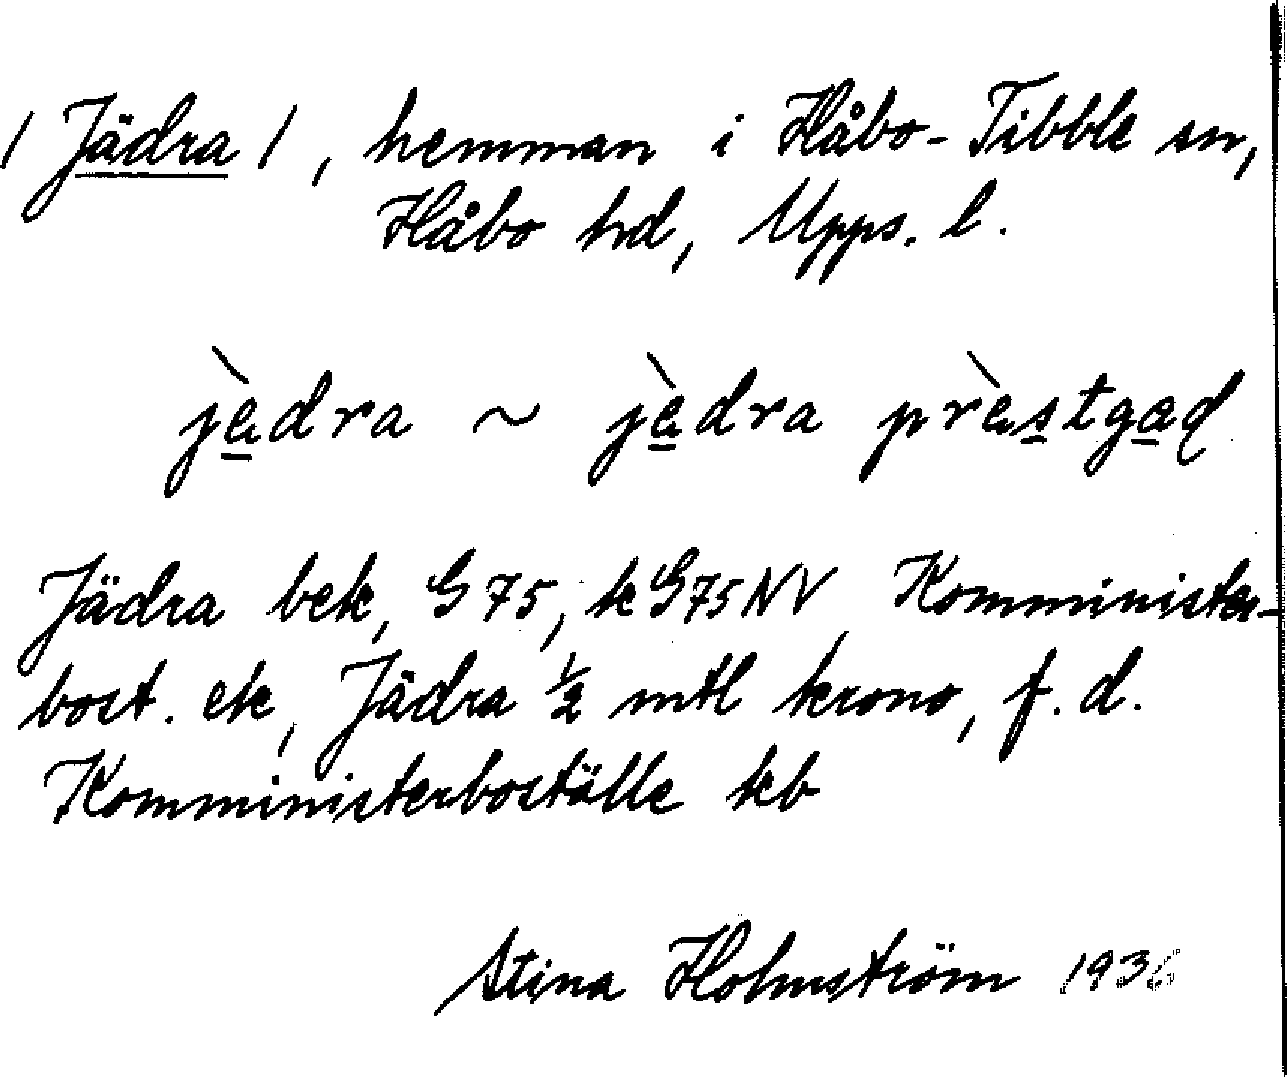 / Jädra /, hemman i Håbo-Tibble sn,
Håbo hd, Upps. l.
jèdra ~ jèdra prèstgad
Jädra bek, G 75, kG75NV Komminister-
bost. ek, Jädra 1/2 mtl krono, f. d.
Komministerboställe kb
Stina Holmström